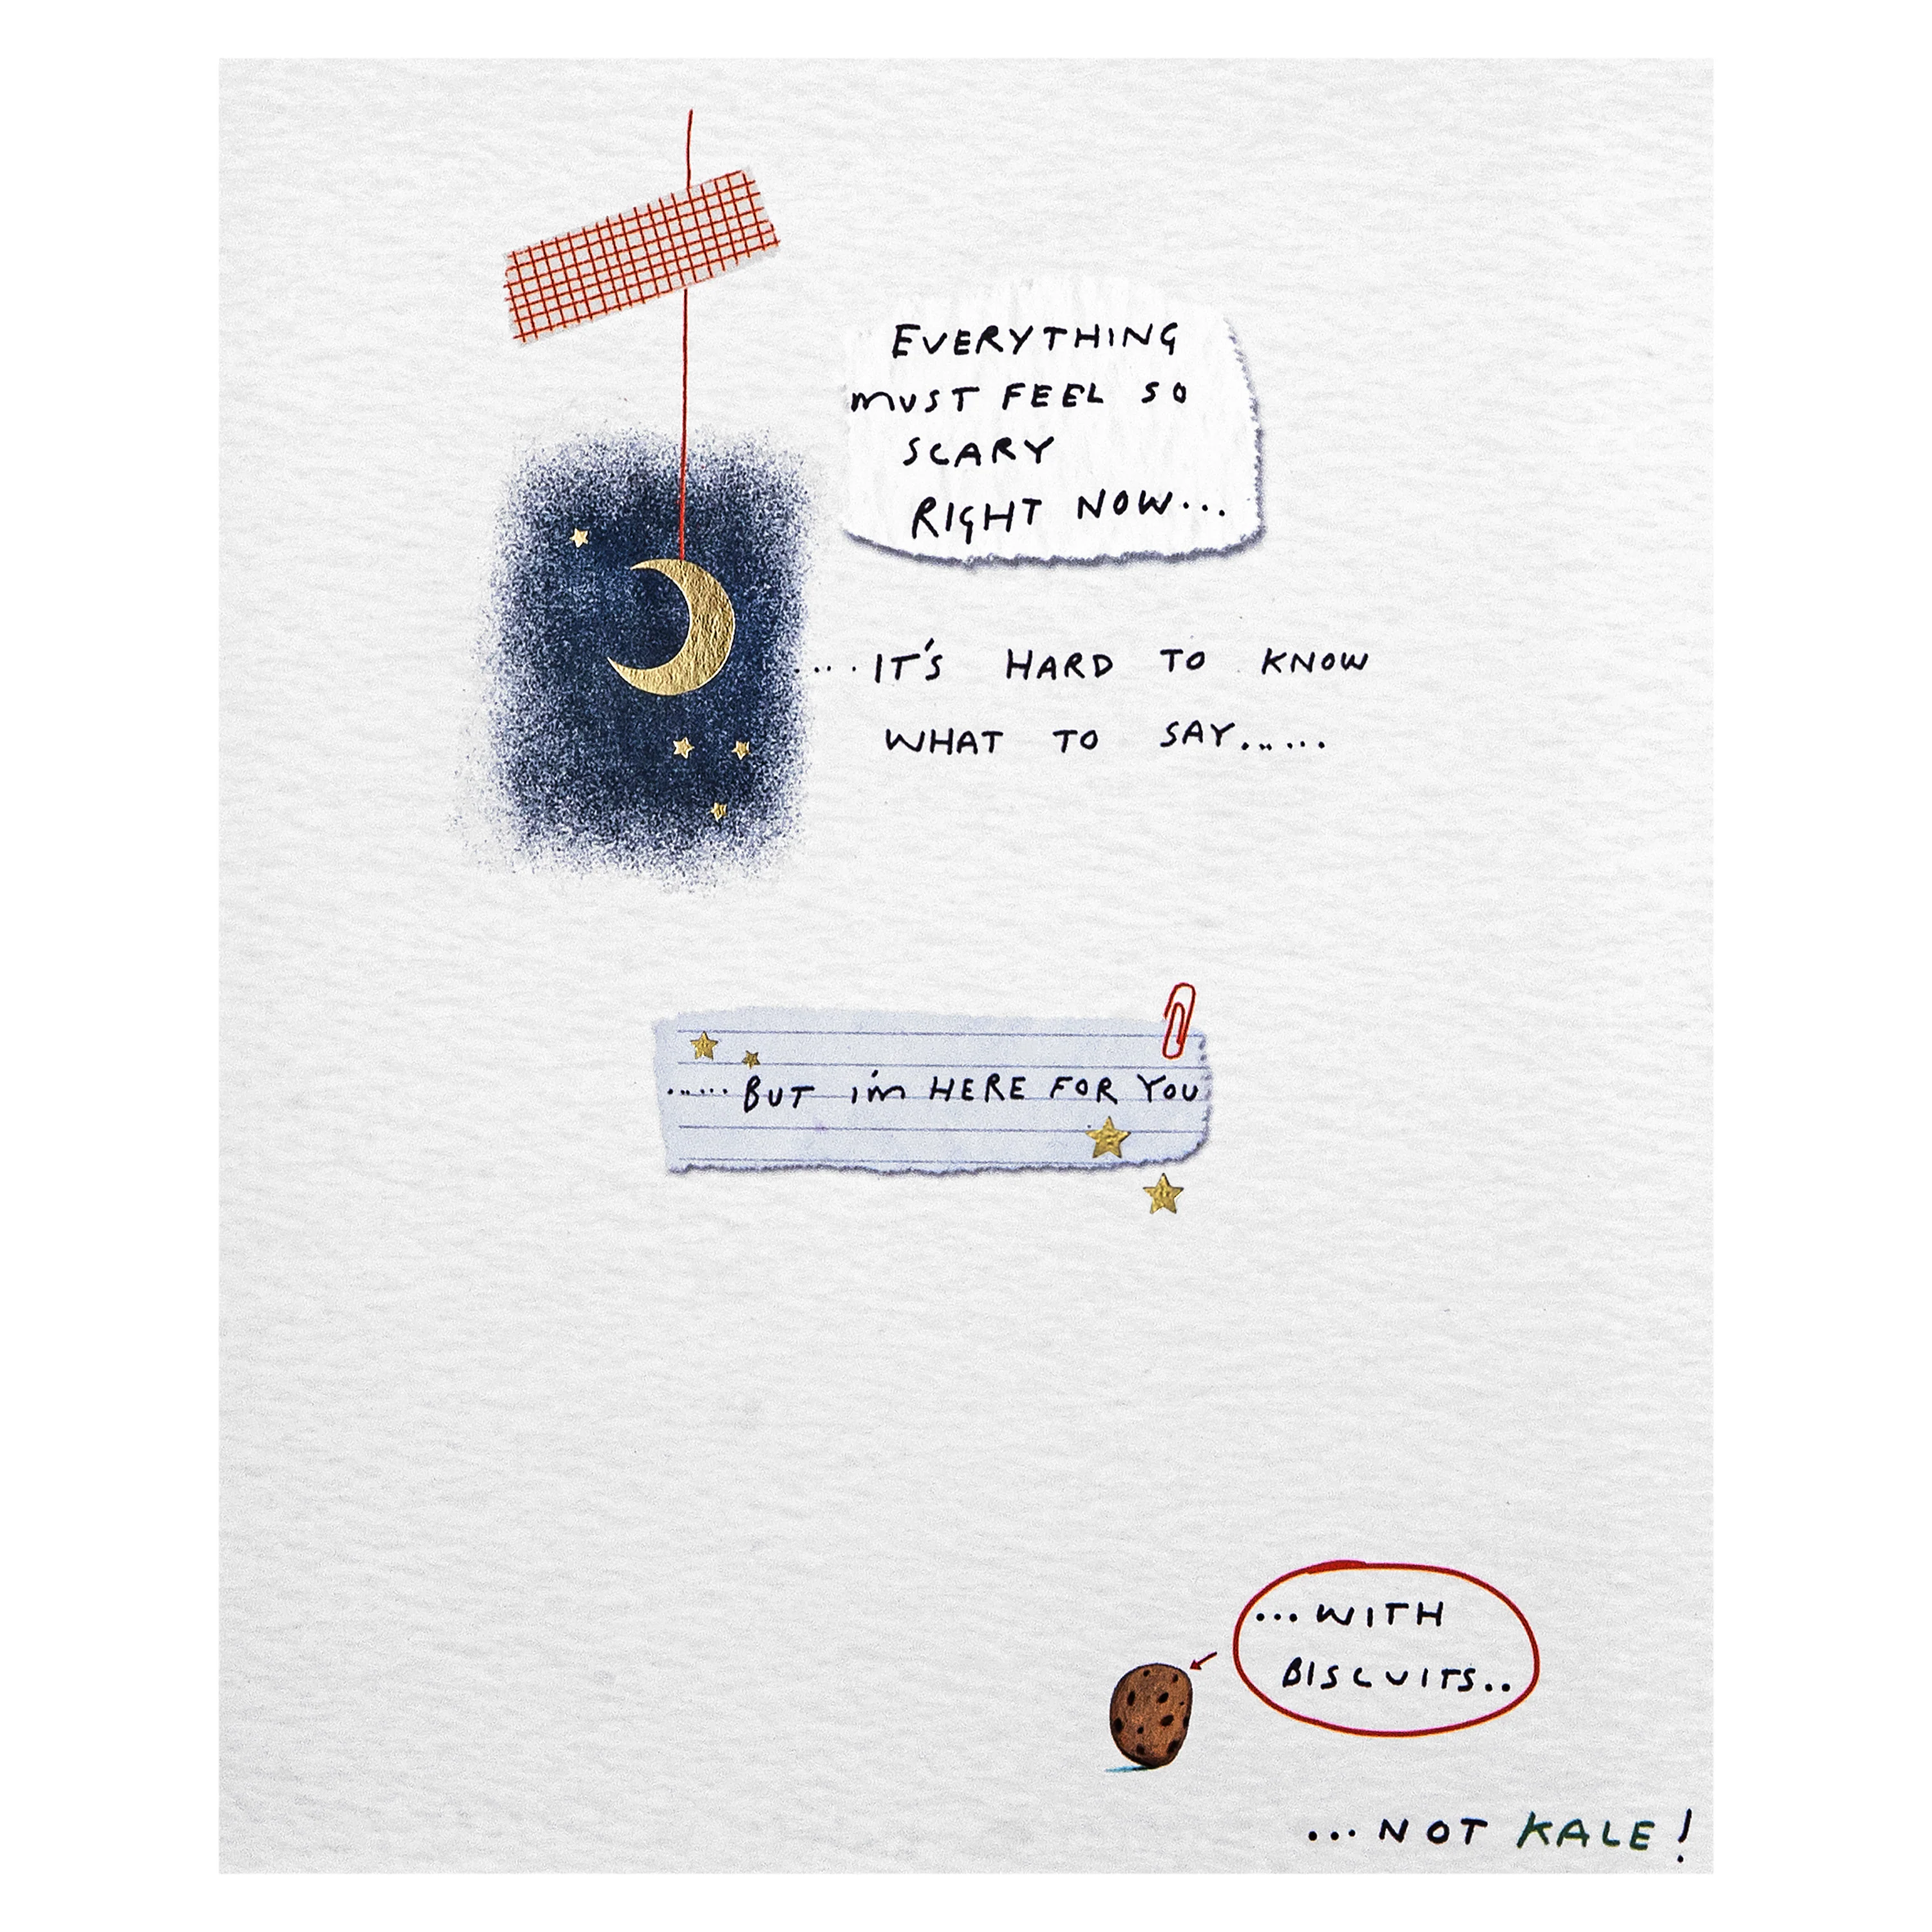 EVERYTHING
MUST FEEL SO
SCARY
RIGHT NOW...
....IT'S HARD TO KNOW
WHAT TO SAY......
......BUT I'm HERE FOR YOU
...WITH
BISCUITS..
...NOT KALE!